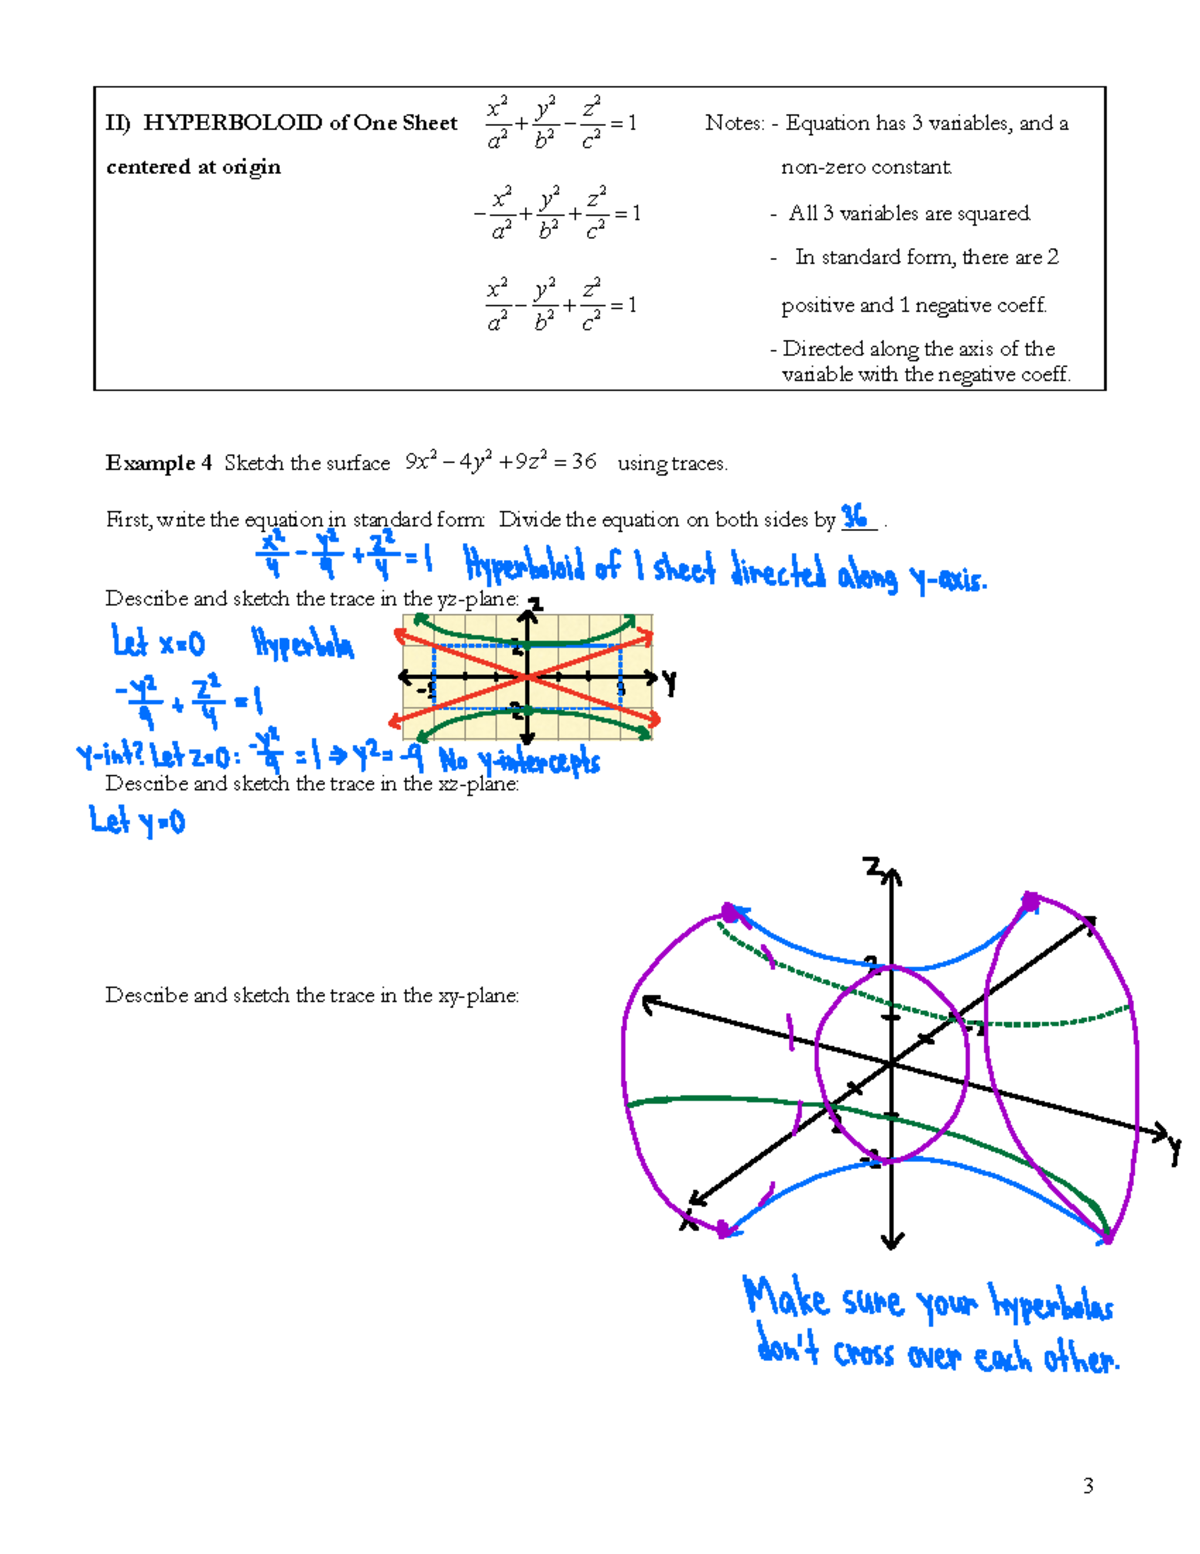 II) HYPERBOLOID of One Sheet x²/a² + y²/b² − z²/c² = 1 Notes: - Equation has 3 variables, and a
centered at origin non-zero constant.
−x²/a² + y²/b² + z²/c² = 1 - All 3 variables are squared
- In standard form, there are 2
x²/a² − y²/b² + z²/c² = 1 positive and 1 negative coeff.
- Directed along the axis of the
variable with the negative coeff.
Example 4 Sketch the surface 9x² − 4y² + 9z² = 36 using traces.
First, write the equation in standard form: Divide the equation on both sides by 36 .
x²/4 − y²/9 + z²/4 = 1 Hyperboloid of 1 sheet directed along y-axis.
Describe and sketch the trace in the yz-plane:
z
Let x=0 Hyperbola
2
-3 3 y
−y²/9 + z²/4 = 1
-2
y-int? Let z=0: −y²/9 = 1 ⇒ y² = -9 No y-intercepts
Describe and sketch the trace in the xz-plane:
Let y=0
z
2
Describe and sketch the trace in the xy-plane:
-2
2
y
-2
x
Make sure your hyperbolas
don't cross over each other.
3